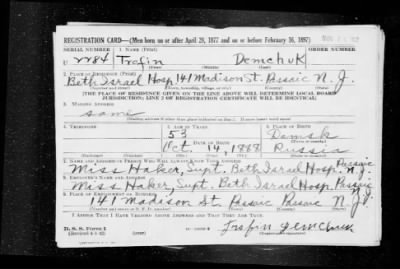 REGISTRATION CARD—(Men born on or after April 28, 1877 and on or before February 16, 1897)
SERIAL NUMBER 1. NAME (Print) ORDER NUMBER
U 2284 Trofin Demchuk
(First) (Middle) (Last)
2. PLACE OF RESIDENCE (Print)
Beth Israel Hosp. 141 Madison St. Passaic N. J.
(Number and street) (Town, township, village, or city) (County) (State)
[THE PLACE OF RESIDENCE GIVEN ON THE LINE ABOVE WILL DETERMINE LOCAL BOARD
JURISDICTION; LINE 2 OF REGISTRATION CERTIFICATE WILL BE IDENTICAL]
3. MAILING ADDRESS
same
[Mailing address if other than place indicated on line 2. If same insert word same]
4. TELEPHONE 5. AGE IN YEARS 6. PLACE OF BIRTH
53
DATE OF BIRTH
Oct. 14, 1888 Russia
7. NAME AND ADDRESS OF PERSON WHO WILL ALWAYS KNOW YOUR ADDRESS
Miss Haker, Supt. Beth Israel Hosp. Passaic N. J.
8. EMPLOYER'S NAME AND ADDRESS
Miss Haker, Supt. Beth Israel Hosp. Passaic
9. PLACE OF EMPLOYMENT OR BUSINESS
141 Madison St Passaic Passaic N. J.
(Number and street or R. F. D. number) (Town) (County) (State)
I AFFIRM THAT I HAVE VERIFIED ABOVE ANSWERS AND THAT THEY ARE TRUE.
D. S. S. Form 1